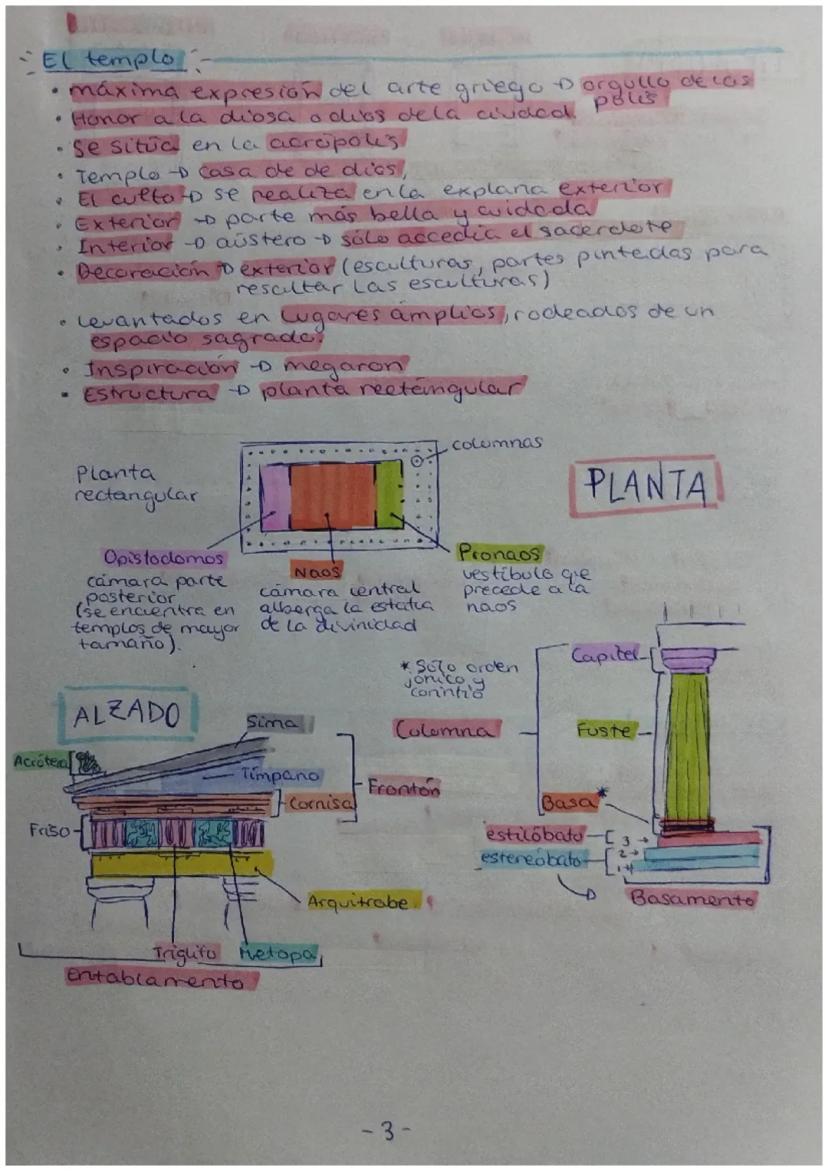 El templo
• máxima expresión del arte griego → orgullo de las
polis
• Honor a la diosa o dios de la ciudad.
• Se sitúa en la acrópolis
• Templo → casa de de dios,
• El culto → se realiza en la explana exterior
• Exterior → parte más bella y cuidada
• Interior → aústero → sólo accedía el sacerdote
• Decoración → exterior (esculturas, partes pintadas para
resaltar las esculturas)
• Levantados en lugares ámplios, rodeados de un
espacio sagrado.
• Inspiración → megaron
• Estructura → planta rectángular
columnas
Planta
rectangular
PLANTA
Opistodomos
cámara parte
posterior
(se encuentra en
templos de mayor
tamaño).
Naos
cámara central
alberga la estatua
de la divinidad
Pronaos
vestíbulo que
precede a la
naos
* Sólo orden
jónico y
corintio
Capitel
Columna
Fuste
Basa*
estilóbato
3 →
estereóbato
2 →
1 →
Basamento
ALZADO
Sima
Acrótera
Tímpano
Cornisa
Frontón
Friso
Arquitrabe
Triglifo
Metopa
Entablamento
- 3 -